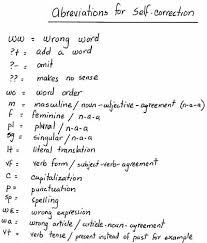 Abreviations for Self-correction
ww = wrong word
?+ = add a word
?- = omit
?? = makes no sense
wo = word order
m = masculine / noun-adjective-agreement (n-a-a)
f = feminine / n-a-a
pl = plural / n-a-a
sg = singular / n-a-a
lt = literal translation
vf = verb form / subject-verb-agreement
C = capitalization
P = punctuation
sp = spelling
we = wrong expression
wa = wrong article / article-noun-agreement
vt = verb tense / present instead of past for example